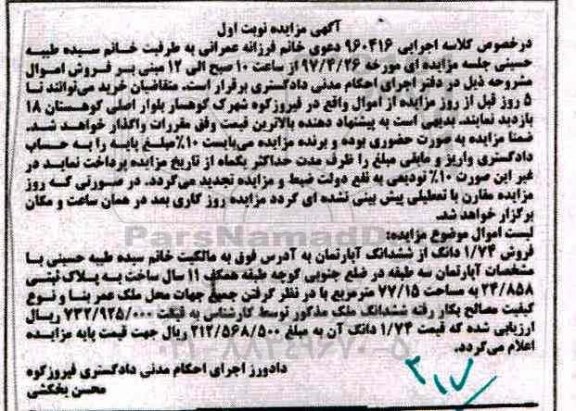 آگهی مزایده نوبت اول
درخصوص کلاسه اجرایی ۹۶۰۴۱۶ دعوی خانم فرزانه عمرانی به طرفیت خانم سیده طیبه
حسینی جلسه مزایده ای مورخه ۹۷/۴/۲۶ از ساعت ۱۰ صبح الی ۱۲ مبنی بر فروش اموال
مشروحه ذیل در دفتر اجرای احکام مدنی دادگستری برقرار است. متقاضیان خرید می‌توانند تا
۵ روز قبل از روز مزایده از اموال واقع در فیروزکوه شهرک کوهسار بلوار اصلی کوهستان ۱۸
بازدید نمایند. بدیهی است به پیشنهاد دهنده بالاترین قیمت وفق مقررات واگذار خواهد شد.
ضمنا مزایده به صورت حضوری بوده و برنده مزایده می‌بایست ۱۰٪ مبلغ پایه را به حساب
دادگستری واریز و مابقی مبلغ را ظرف مدت حداکثر یکماه از تاریخ مزایده پرداخت نماید در
غیر این صورت ۱۰٪ تودیعی به نفع دولت ضبط و مزایده تجدید می‌گردد. در صورتی که روز
مزایده مقارن با تعطیلی پیش بینی نشده ای گردد مزایده روز کاری بعد در همان ساعت و مکان
برگزار خواهد شد.
لیست اموال موضوع مزایده:
فروش ۱/۷۴ دانگ از ششدانگ آپارتمان به آدرس فوق به مالکیت خانم سیده طیبه حسینی با
مشخصات آپارتمان سه طبقه در ضلع جنوبی کوچه طبقه همکف ۱۱ سال ساخت به پلاک ثبتی
۲۴/۸۵۸ به مساحت ۷۷/۱۵ مترمربع با در نظر گرفتن جمیع جهات محل ملک عمر بنا و نوع
کیفیت مصالح بکار رفته ششدانگ ملک مذکور توسط کارشناس به قیمت ۷۳۲/۹۲۵/۰۰۰ ریال
ارزیابی شده که قیمت ۱/۷۴ دانگ آن به مبلغ ۲۱۲/۵۶۸/۵۰۰ ریال جهت قیمت پایه مزایده
اعلام می‌گردد.
دادورز اجرای احکام مدنی دادگستری فیروزکوه
محسن بخشی